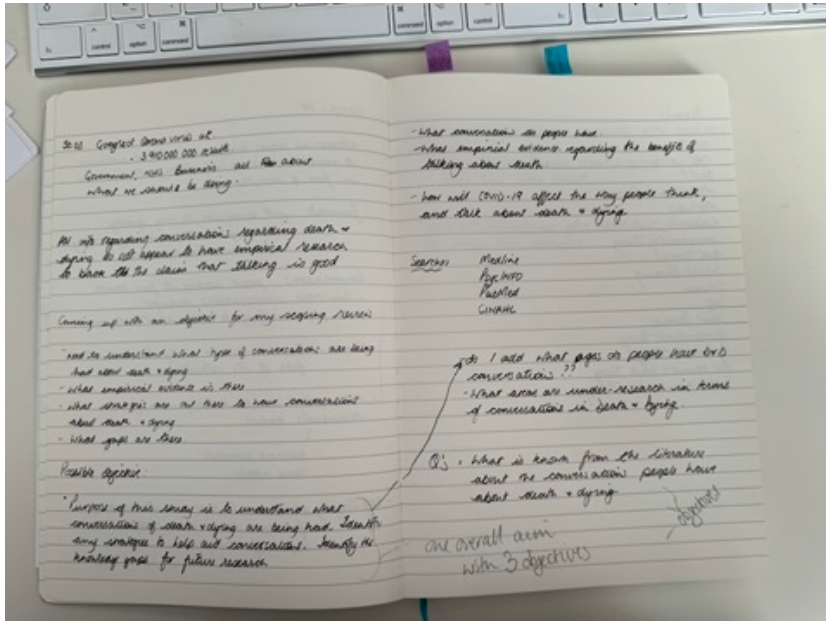 control
option
command
command
option
control
Googled Corona virus at
3 910 000 000 results
Government, Business all about
what we should be doing.
All info regarding conversations regarding death +
dying do not appear to have empirical research
to back the claim that talking is good
Coming up with an objective for my scoping review
- need to understand what type of conversations are being
had about death + dying
- what empirical evidence is there
- what strategies are out there to have conversations
about death + dying
- what gaps are there.
Possible objective:
"Purpose of this study is to understand what
conversations of death + dying are being had. Identify
any strategies to help aid conversations. Identify the
knowledge gaps for future research
- what conversations do people have
- what empirical evidence regarding the benefits of
talking about death.
- how will COVID-19 affect the way people think,
and talk about death + dying.
Searches Medline
PsycINFO
PubMed
CINAHL
- do I add what ages do people have
conversations??
- what areas are under-research in terms
of conversations in death + dying.
Q's . What is known from the literature
about the conversations people have
about death + dying
objectives
one overall aim
with 3 objectives